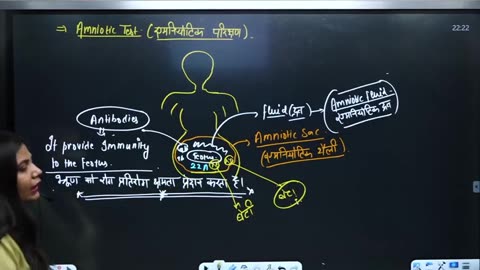 ⇒ Amniotic Test (एमनियोटिक परिक्षण).
22:22
Antibodies
fluid (द्रव)
Amniotic fluid
एमनियोटिक द्रव
It provide Immunity
to the foetus.
Foetus
Amniotic Sac
(एमनियोटिक थैली)
भ्रूण को रोग प्रतिरोधक क्षमता प्रदान करता है।
बेटी
बेटा